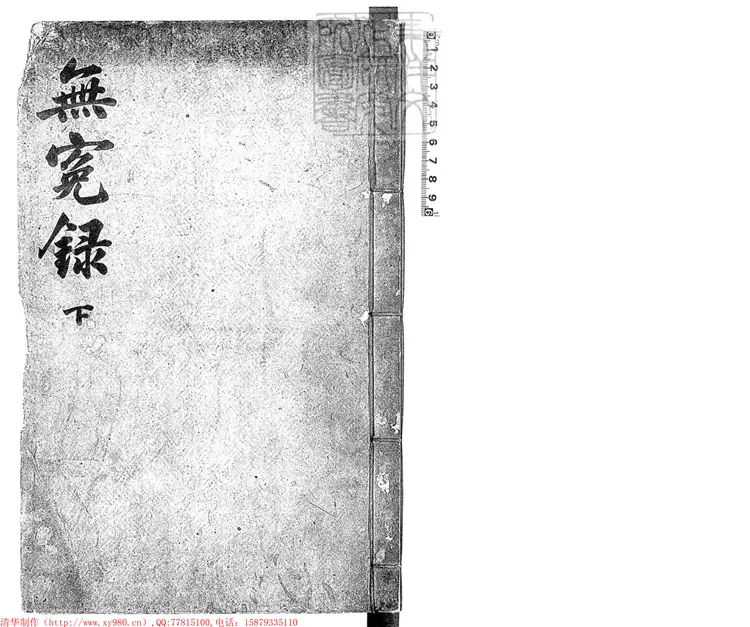 無寃録
下
0 1 2 3 4 5 6 7 8 9
清华制作（http://www.xy980.cn）,QQ:77815100,电话：15879335110